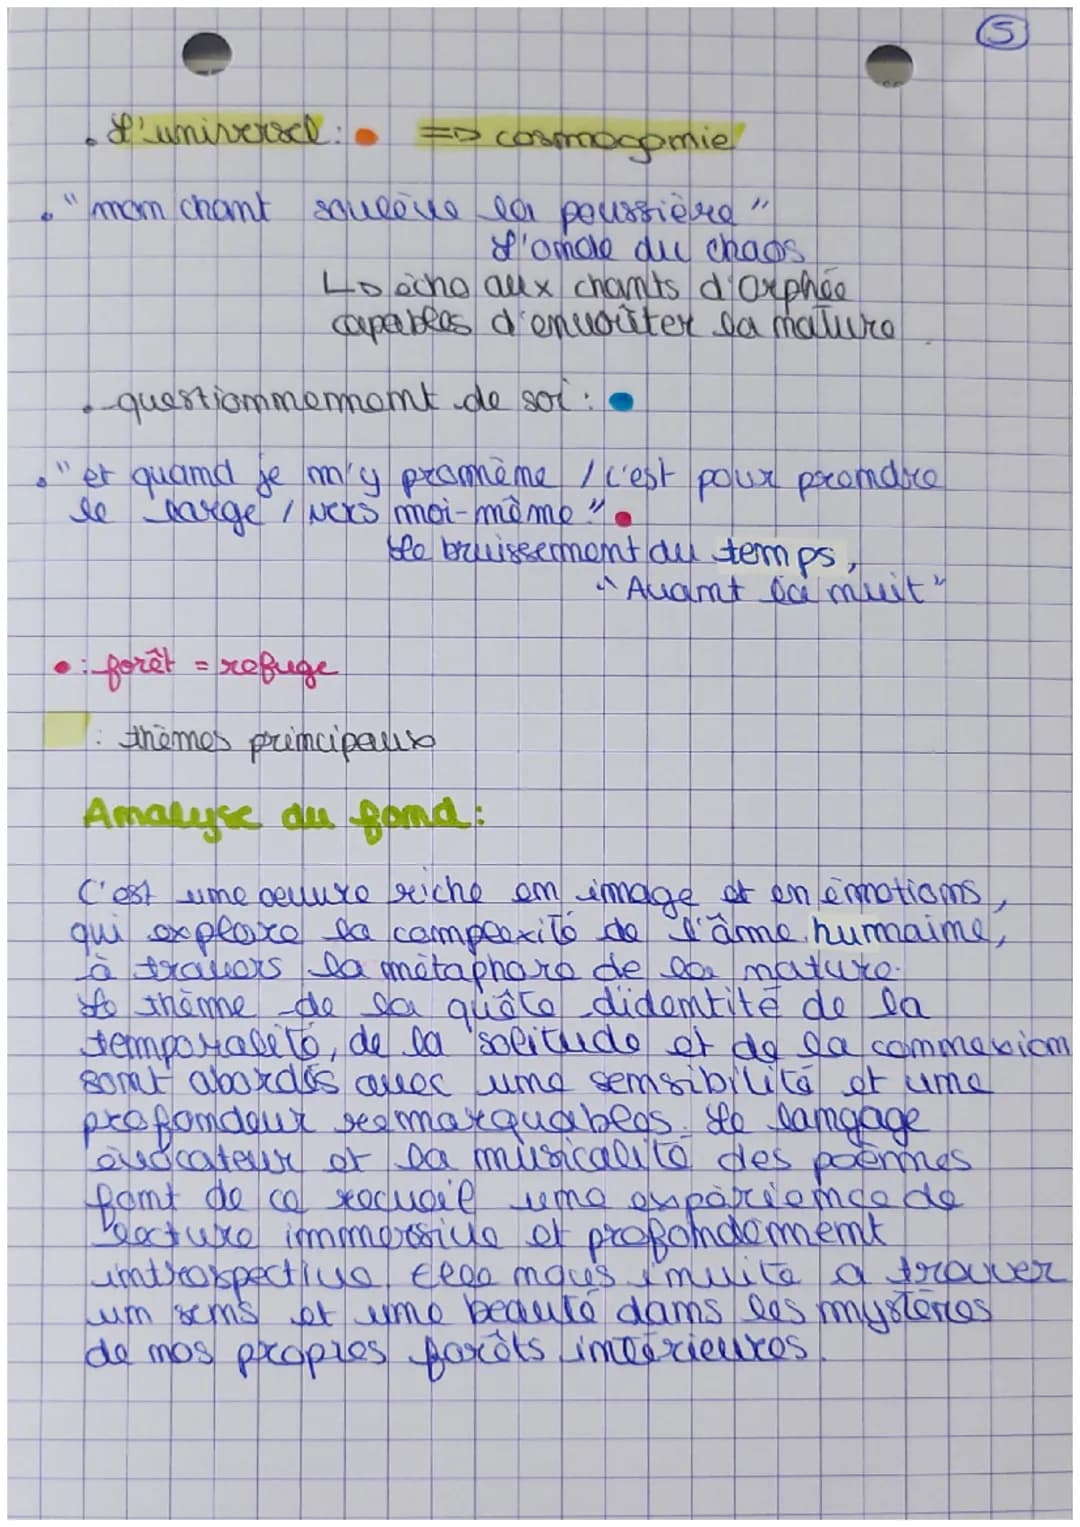 5
. L'universel : => cosmogonie
. "mon chant soulève la poussière"
L'onde du chaos
↳ écho aux chants d'Orphée
capables d'envoûter la nature
. questionnement de soi :
. "et quand je m'y promène / c'est pour prendre
le large / vers moi-même".
Le bruissement du temps,
"Avant la nuit"
: forêt = refuge
: thèmes principaux
Analyse du fond :
C'est une oeuvre riche en image et en émotions,
qui explore la complexité de l'âme humaine,
à travers la métaphore de la nature.
Le thème de la quête didentité de la
temporalité, de la solitude et de la connexion
sont abordés avec une sensibilité et une
profondeur remarquables. Le langage
évocateur et la musicalité des poèmes
font de ce recueil une expérience de
lecture immersive et profondément
introspective. Elle nous invite a trouver
un sens et une beauté dans les mystères
de nos propres forêts intérieures.